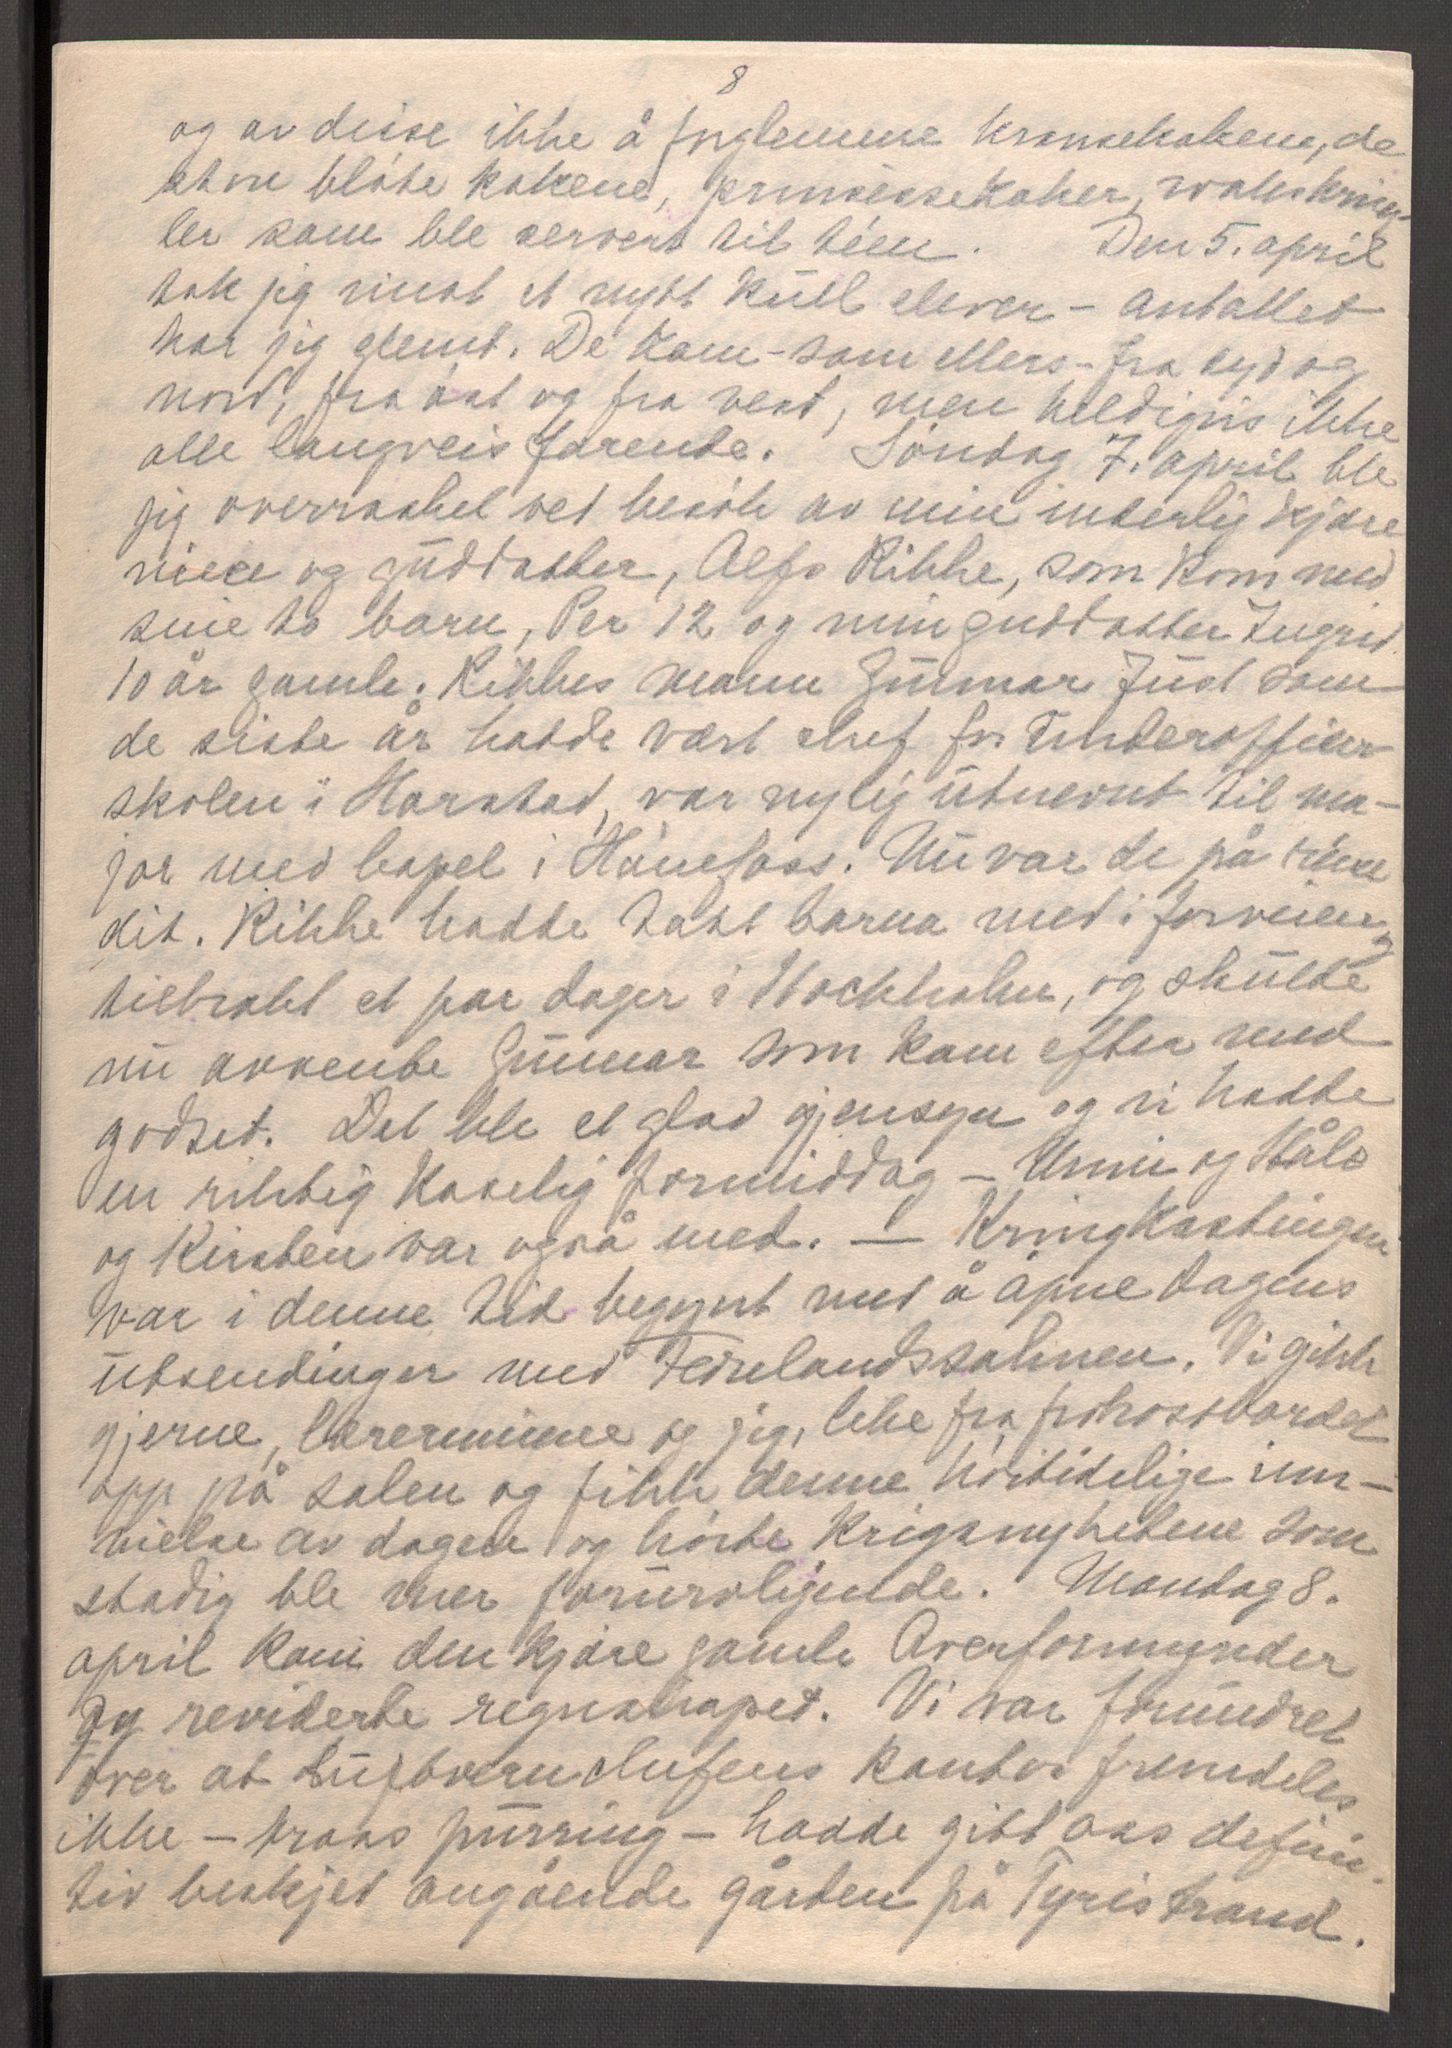 8
og av disse ikke å forglemme kransekakene, de
store bløte kakene, prinsessekaker, wienerkring-
ler som ble servert til teen. Den 5. april
tok jeg imot et nytt kull elever - antallet
har jeg glemt. De kom - som ellers - fra syd og
nord, fra øst og fra vest, men heldigvis ikke
alle langveisfarende. Søndag 7. april ble
jeg overrasket ved besøk av min inderlig kjære
niece og guddatter, Rikke, som kom med
sine to barn, Per 12 og min guddatter Ingrid
10 år gamle. Rikkes mann Gunnar Juul som
de siste år hadde vært chef for Underofficer
skolen i Harstad, var nylig utnevnt til ma-
jor med bopel i Hønefoss. Nu var de på reise
dit. Rikke hadde tatt barna med i forveien,
tilbrakt et par dager i Stockholm, og skulde
nu avvente Gunnar som kom efter med
godset. Det ble et glad gjensyn og vi hadde
en riktig koselig formiddag - Unni og Ståle
og Kirsten var også med. — Kringkastingen
var i denne tid begynt med å åpne dagens
utsendinger med Fedrelandssalmen. Vi gikk
gjerne, lærerinnene og jeg, like fra frokostbordet
opp på salen og fikk denne høitidelige inn-
vielse av dagen og hørte krigsnyhetene som
stadig ble mer foruroligende. Mandag 8.
april kom den kjære gamle Overformynder
og reviderte regnskapet. Vi var forundret
over at Luftvernchefens kontor fremdeles
ikke - tross purring - hadde gitt oss defini-
tiv beskjed angående gården på Tyristrand.